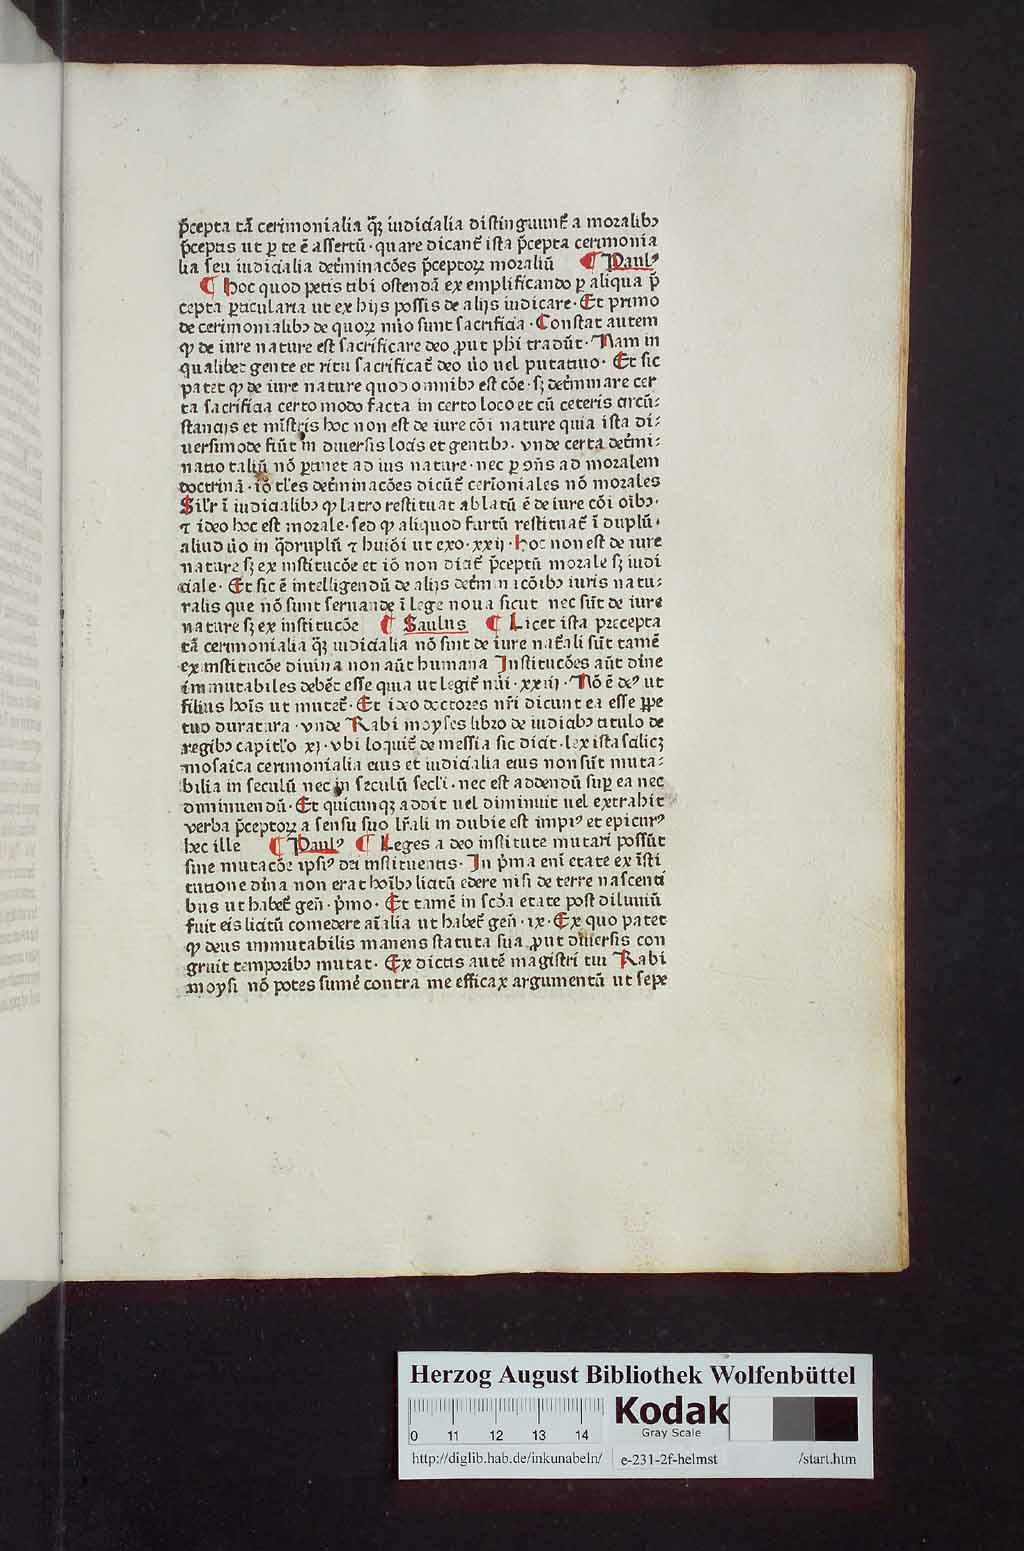 p̄cepta tā cerimonialia q̄ꝫ iudicialia distinguunt᷑ a moralibꝰ
p̄ceptis ut ꝑ te ē assertū · quare dicant᷑ ista p̄cepta cerimonia
lia seu iudicialia det᷑minacōes p̄ceptoꝝ moraliū ¶ Paulꝰ
¶ Hoc quod petis tibi ostendā exemplificando ꝑ aliqua p̄
cepta ꝑticularia ut ex hijs possis de alijs iudicare · Et primo
de cerimonialibꝫ de quoꝝ nūo sunt sacrificia · Constat autem
ꝙ de iure nature est sacrificare deo ꝓut phi tradūt · Nam in
qualibet gente et ritu sacrificat᷑ deo u̇o uel putatiuo · Et sic
patet ꝙ de iure nature quod omnibꝫ est cōe · sꝫ det᷑minare cer
ta sacrificia certo modo facta in certo loco et cū ceteris circū-
stancijs et mīstris hoc non est de iure cōi nature quia ista di-
uersimode fiūt in diuersis locis et gentibꝫ · vnde certa det᷑mi-
natio taliū nō ꝑtinet ad ius nature · nec ꝑ ↄn̄s ad moralem
doctrinā · iō tl̄es det᷑minacōes dicūt᷑ cerīoniales nō morales
Sil̄r ī iudicialibꝫ ꝙ latro restituat ablatū ē de iure cōi oībꝫ ·
⁊ ideo hoc est morale · sed ꝙ aliquod furtū restituat᷑ ī duplū ·
aliud u̇o in q̄druplū ⁊ huiōi ut exo · xxij · Hoc non est de iure
nature sꝫ ex institucōe et iō non dicit᷑ p̄ceptū morale sꝫ iudi
ciale · Et sic ē intelligendū de alijs det᷑minacōibꝫ iuris natu-
ralis que nō sunt seruande ī lege noua sicut nec sūt de iure
nature sꝫ ex institucōe ¶ Saulus ¶ Licet ista precepta
tā cerimonialia q̄ꝫ iudicialia nō sint de iure nat᷑ali sūt tamē
ex institucōe diuina non aūt humana Institucōes aūt dine
immutabiles debēt esse quia ut legit᷑ nūi · xxiij · Nō ē deꝰ ut
filius hoīs ut mutet᷑ · Et ideo doctores nr̄i dicunt ea esse ꝑpe
tuo duratura · vnde Rabi moyses libro de iudicibꝫ titulo de
regibꝫ capitl̓o xj · vbi loquit᷑ de messia sic dicit · lex ista scilicꝫ
mosaica cerimonialia eius et iudicialia eius non sūt muta-
bilia in seculū nec in seculū secl̓i · nec est addendū suꝑ ea nec
diminuendū · Et quicunqꝫ addit uel diminuit uel extrahit
verba p̄ceptoꝝ a sensu suo lr̄ali in dubie est impiꝰ et epicurꝰ
hec ille ¶ Paulꝰ ¶ Leges a deo institute mutari possūt
sine mutacōe ipsiꝰ dei instituentis · In p̄ma enī etate ex īsti
tutione diīna non erat hoībꝫ licitū edere nisi de terre nascenti
bus ut habet᷑ gen̄ · p̄mo · Et tamē in scḋa etate post diluuiū
fuit eis licitū comedere aīalia ut habet᷑ gen̄ · ix · Ex quo patet
ꝙ deus immutabilis manens statuta sua ꝓut diuersis con
gruit temporibꝫ mutat · Ex dictis autē magistri tui Rabi
moysi nō potes sumė contra me efficax argumentū ut sepe
Herzog August Bibliothek Wolfenbüttel
0 11 12 13 14
Kodak
Gray Scale
http://diglib.hab.de/inkunabeln/ e-231-2f-helmst /start.htm